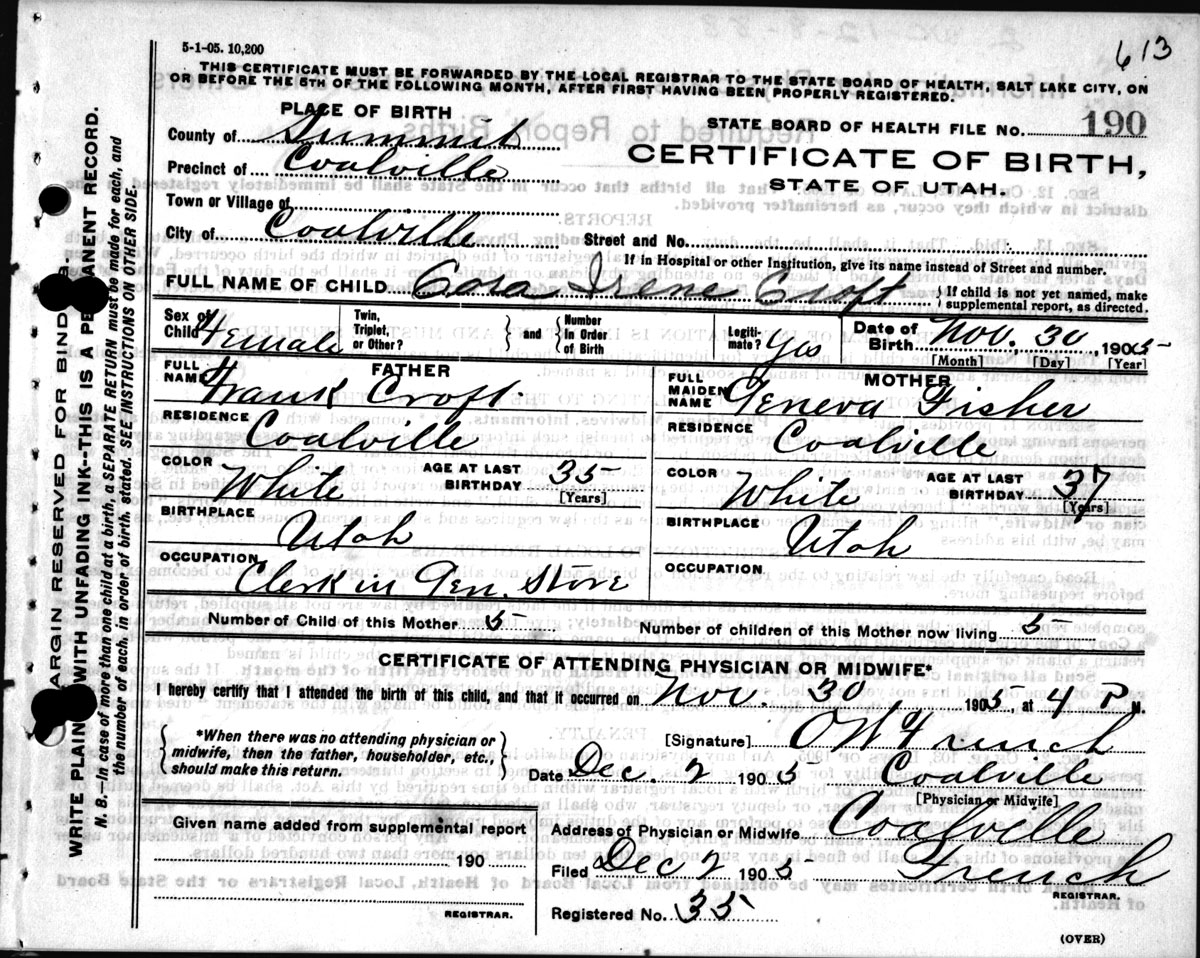 613
5-1-05. 10,200
THIS CERTIFICATE MUST BE FORWARDED BY THE LOCAL REGISTRAR TO THE STATE BOARD OF HEALTH, SALT LAKE CITY, ON
OR BEFORE THE 5TH OF THE FOLLOWING MONTH, AFTER FIRST HAVING BEEN PROPERLY REGISTERED.
PLACE OF BIRTH
STATE BOARD OF HEALTH FILE NO. 190
County of Summit
CERTIFICATE OF BIRTH,
Precinct of Coalville
STATE OF UTAH.
Town or Village of
City of Coalville Street and No.
If in Hospital or other Institution, give its name instead of Street and number.
FULL NAME OF CHILD Cora Irene Croft { If child is not yet named, make supplemental report, as directed.
Sex of Child Female Twin, Triplet, or Other? } and { Number In Order of Birth Legitimate? Yes Date of Birth Nov. 30, 1905
[Month] [Day] [Year]
FATHER
FULL NAME Frank Croft
RESIDENCE Coalville
COLOR White AGE AT LAST BIRTHDAY 35
[Years]
BIRTHPLACE Utah
OCCUPATION Clerk in Gen. Store
MOTHER
FULL MAIDEN NAME Geneva Fisher
RESIDENCE Coalville
COLOR White AGE AT LAST BIRTHDAY 37
[Years]
BIRTHPLACE Utah
OCCUPATION
Number of Child of this Mother 5 Number of children of this Mother now living 5
CERTIFICATE OF ATTENDING PHYSICIAN OR MIDWIFE*
I hereby certify that I attended the birth of this child, and that it occurred on Nov. 30 1905, at 4 P M.
{ *When there was no attending physician or
midwife, then the father, householder, etc.,
should make this return. }
[Signature] French
Date Dec. 2 1905 Coalville
[Physician or Midwife]
Given name added from supplemental report
190
REGISTRAR.
Address of Physician or Midwife Coalville
Filed Dec 2 1905 French
REGISTRAR.
Registered No. 35
(OVER)
MARGIN RESERVED FOR BINDING.
WRITE PLAINLY WITH UNFADING INK--THIS IS A PERMANENT RECORD.
N. B.--In case of more than one child at a birth, a SEPARATE RETURN must be made for each, and
the number of each, in order of birth, stated. SEE INSTRUCTIONS ON OTHER SIDE.